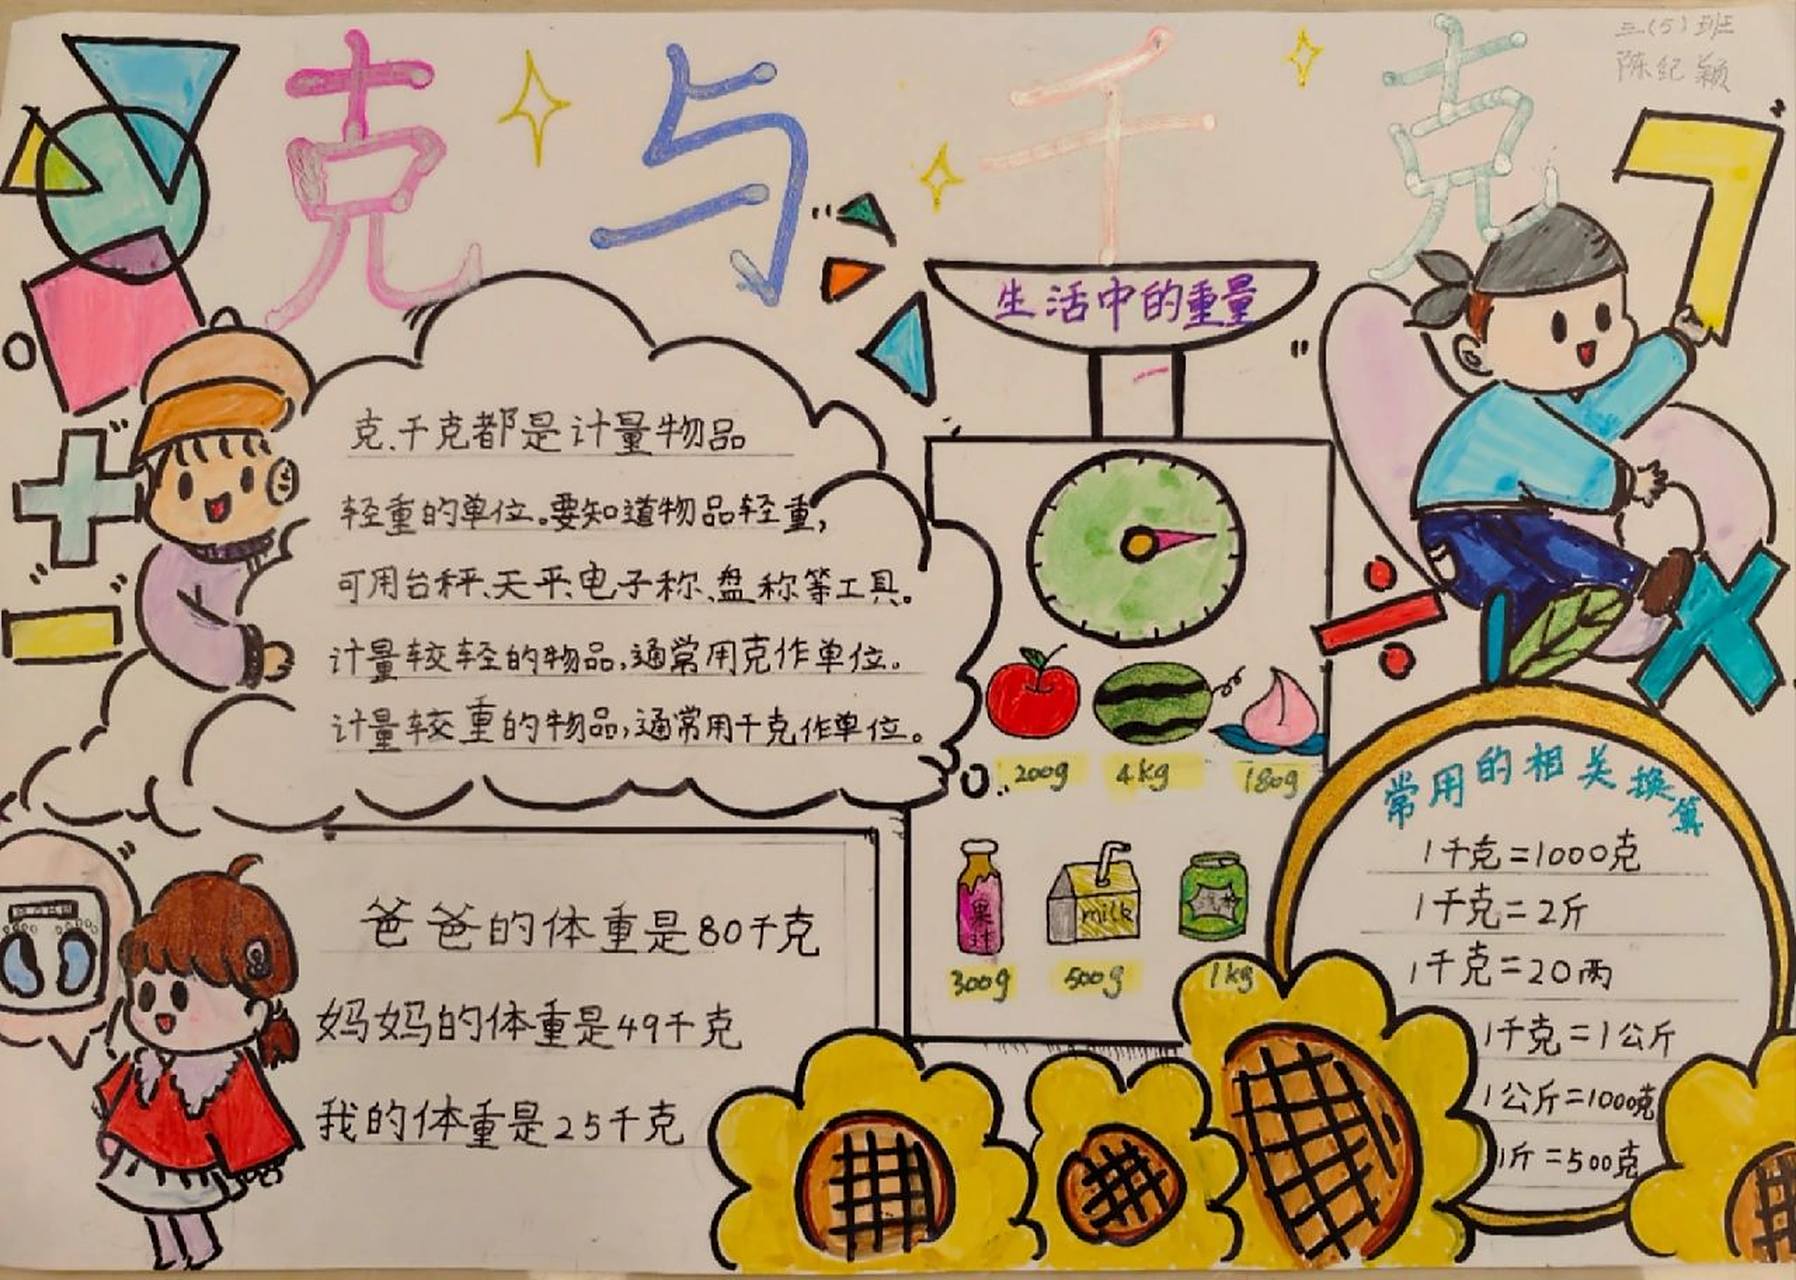 克与千克
三(5)班
陈纪颖
生活中的重量
克、千克都是计量物品
轻重的单位。要知道物品轻重,
可用台秤、天平、电子称、盘称等工具。
计量较轻的物品,通常用克作单位。
计量较重的物品,通常用千克作单位。
200g 4kg 180g
果汁
milk
300g 500g 1kg
爸爸的体重是80千克
妈妈的体重是49千克
我的体重是25千克
常用的相关换算
1千克=1000克
1千克=2斤
1千克=20两
1千克=1公斤
1公斤=1000克
1斤=500克